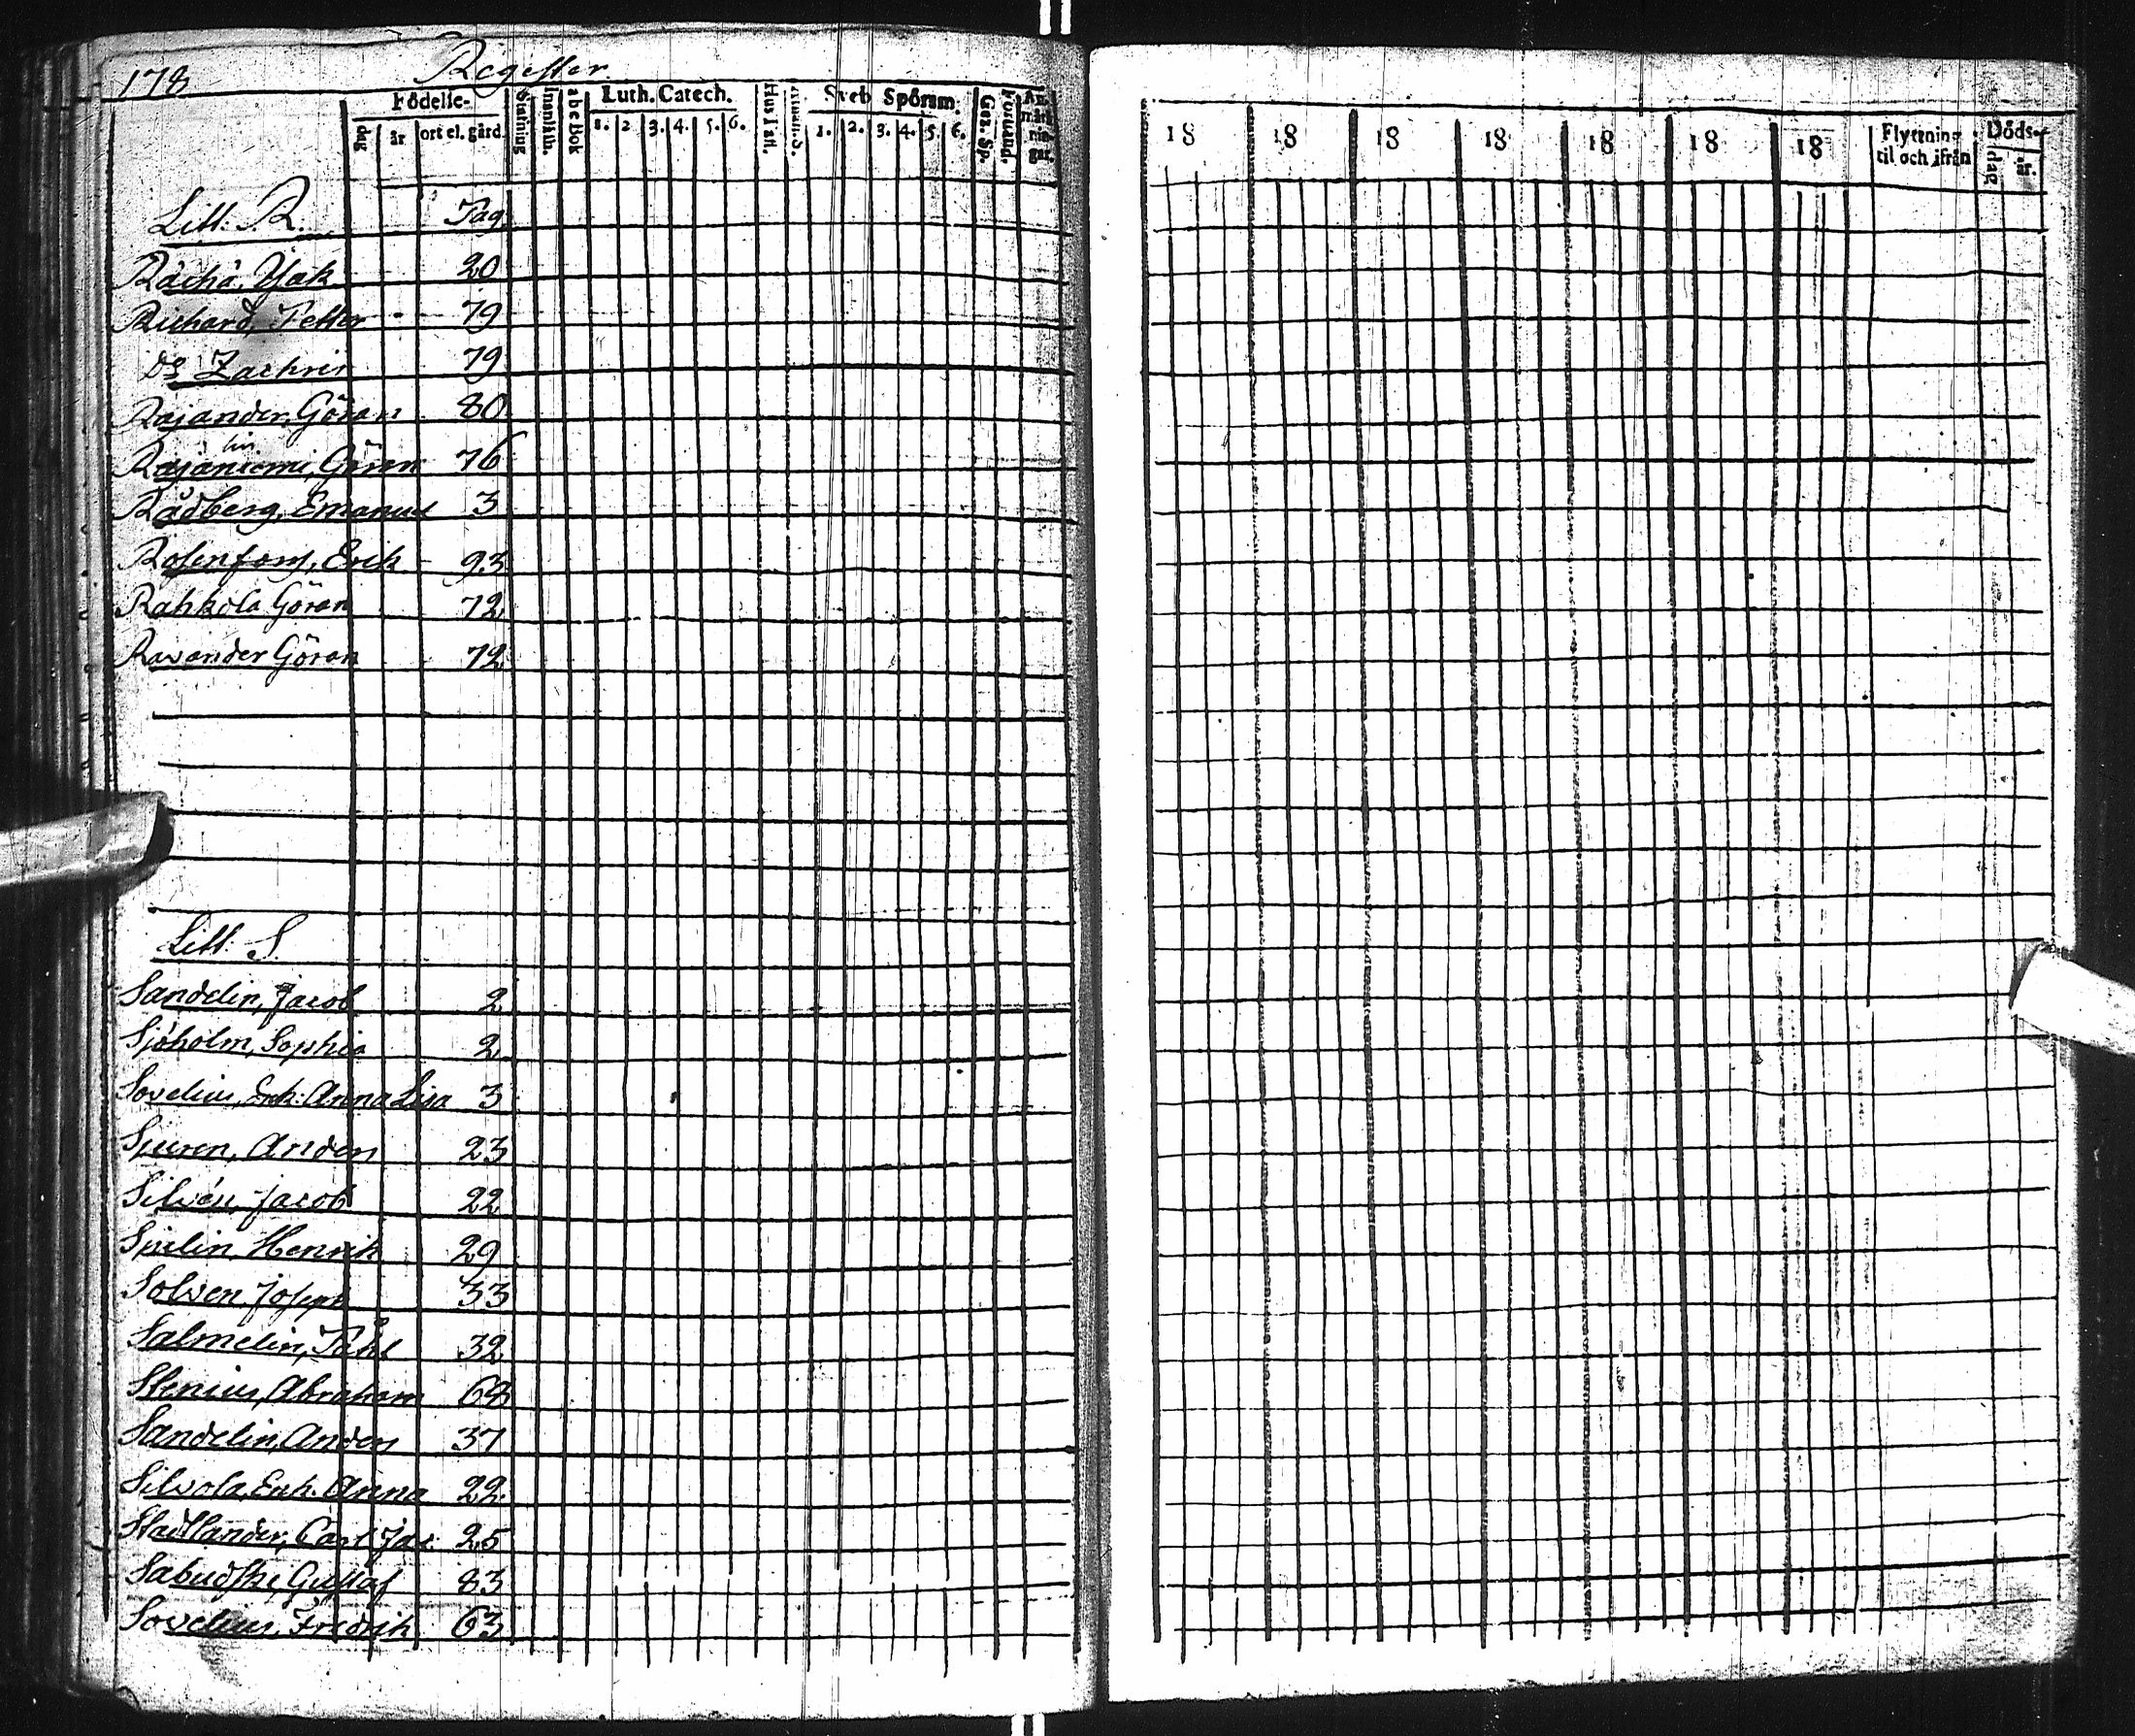 178 Register
Födelse-
dag år ort el. gård.
Stafning
Innanläsn.
abc Bok
Luth. Catech.
1. 2 3. 4. 5. 6.
Hus Taff.
Sveb Spörsm.
1. 2. 3. 4. 5. 6.
Gez. Sp.
Förstånd.
An-
märk
nin-
gar.
18 18 18 18 18 18 18
Flyttning
til och ifrån
Döds-
dag år.
Litt. R. Pag
Räihä, Isak 20
Richard, Petter 79
Do Zachris 79
Rajander, Göran 80
lin
Rajaniemi, Göran 76
Rådberg, Emanuel 3
Rosenfors, Erik 93
Rahkola Göran 72
Ravander Göran 72
Litt. S.
Sandelin, Jacob 2
Sjöholm, Sophia 2
Sovelius, Enk: Anna Lisa 3
Anders 23
Silvén, Jacob 22
Henrik 29
Solven Joseph 33
Salmelin, Påhl 32
Stenius, Abraham 68
Sandelin, Anders 37
Silvola, Enk. Anna 22
Stadlander, Carl Jac: 25
Gustaf 83
Sovelius, Fredrik 63